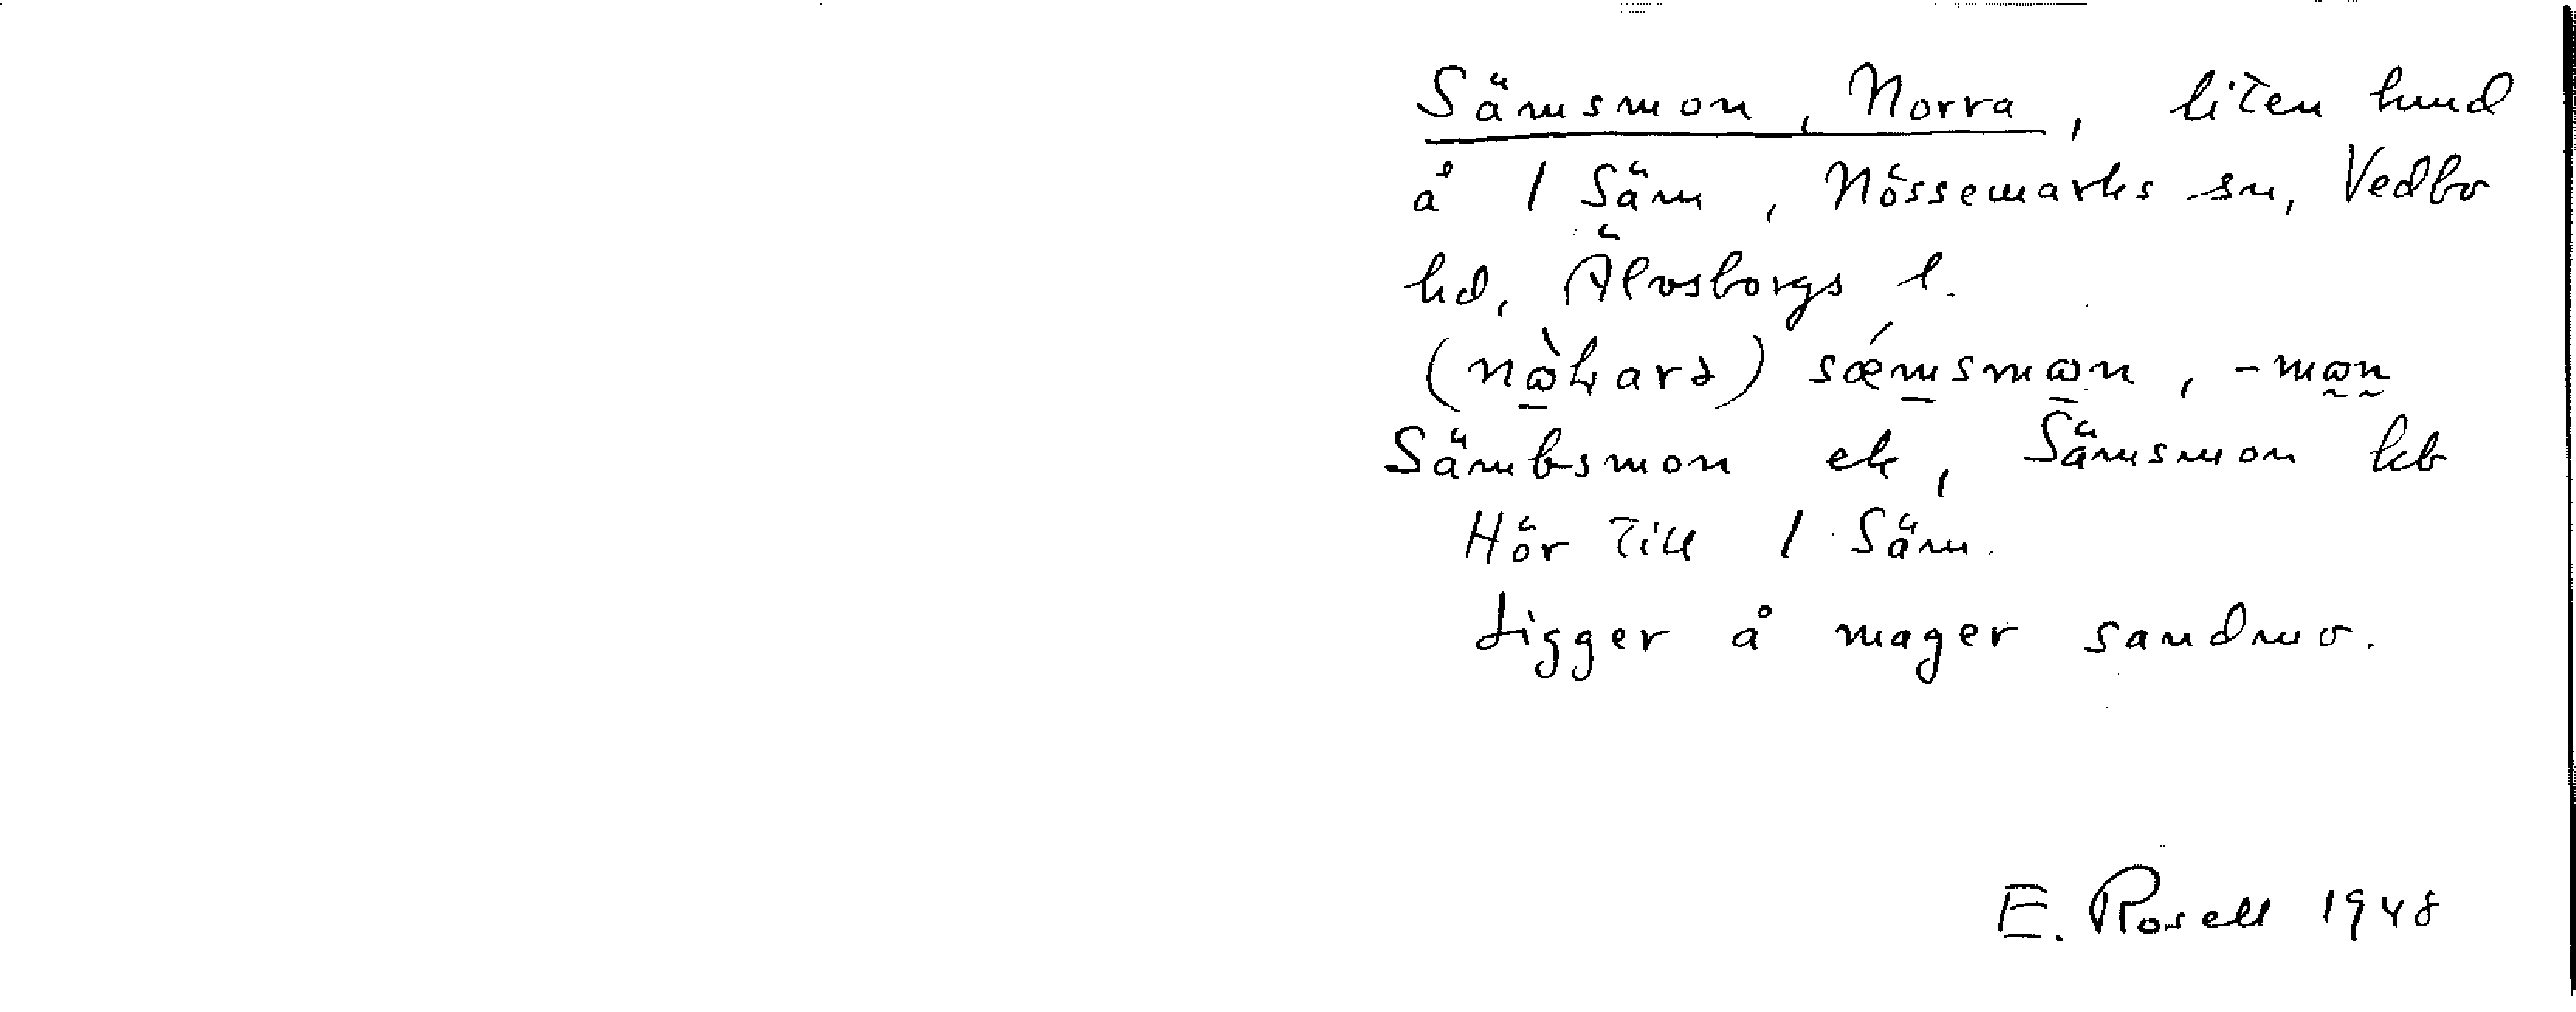 Sämsmon, Norra, liten lmd
å 1 Säm, Nössemarks sn, Vedbo
hd, Älvsborgs l.
sǽmsmωn, -mωn
Sämbsmon ek, Sämsmon kb
Hör till 1 Säm.
Ligger å mager sandmo.
E. Rosell 1948